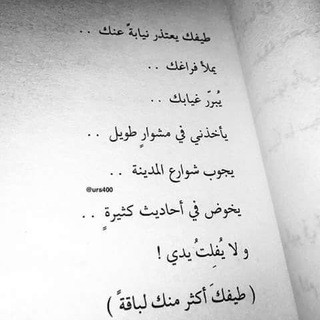 طيفك يعتذر نيابةً عنك ..
يملأ فراغك ..
يُبرّر غيابك ..
يأخذني في مشوارٍ طويل ..
يجوب شوارع المدينة ..
@urs400
يخوض في أحاديث كثيرةٍ ..
و لا يُفلِتُ يدي !
( طيفكَ أكثر منك لباقةً )